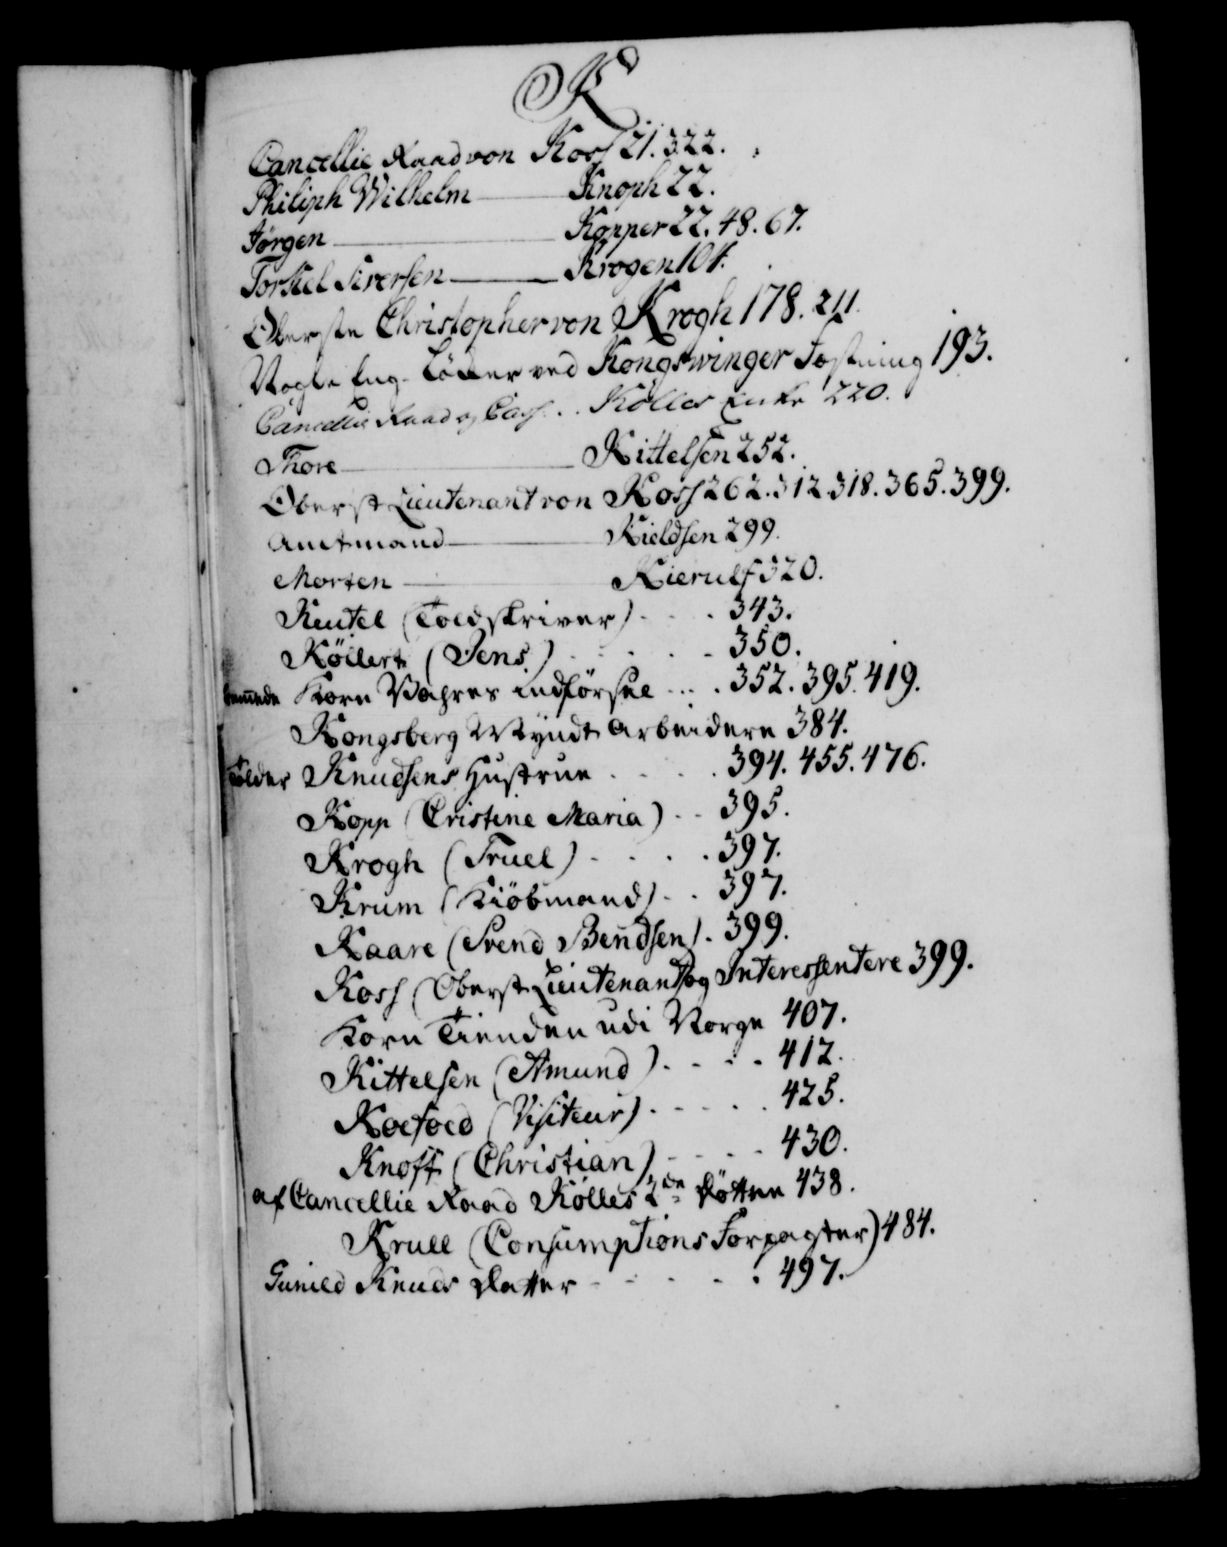 K
Cancellie Raad von Koss 21. 322.
Philiph Wilhelm Knoph 22.
Jørgen Kopper 22. 48. 67.
Torkel Siversen Krogen 104.
Oberste Christopher von Krogh 178. 211.
Nogle Eng- Löcker ved Kongswinger Fæstning 193.
Cancellie Raad og Cass... Kölles Enke 220.
Thore Kittelsen 252.
Oberst Lieutenant von Koss 262. 312. 318. 365. 399.
Amtmand Kieldsen 299.
Morten Kierulf 320.
Keutel (Toldskriver) . . . 343.
Köilert (Jens) . . . . . 350.
fremmede Korn Vahres indførsel ... . 352. 395. 419.
Kongsberg Myndt Arbeidere 384.
Tolder Knudsens Hustrue . . . . . 394. 455. 476.
Kopp (Cristine Maria) . . 395.
Krogh (Truel) . . . . 397.
Krum (Kiöbmand) . . 397.
Kaare (Svend Bendsen) . 399.
Koss (Oberst Lieutenant) og Interessentere 399.
Korn Tienden udi Norge 407.
Kittelsen (Amund) . . . . 412.
Koefoed (Visiteur) . . . . . 425.
Knoff (Christian) . . . . 430.
af Cancellie Raad Kölles 2de Döttre 438.
Krull (Consumptions Forpagter) 484.
Gunild Knuds Datter . . . . . 497.